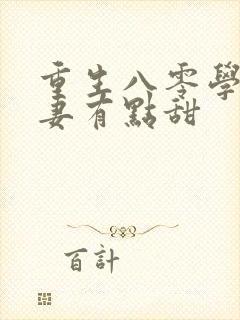 重生八零學
妻有點甜
百計